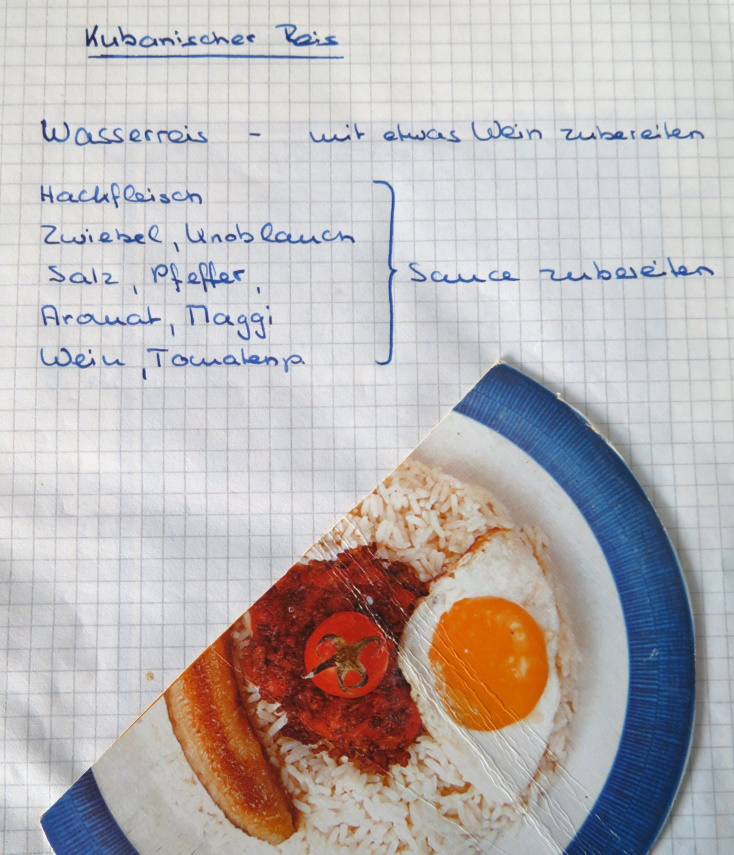 Kubanischer Reis
Wasserreis - mit etwas Wein zubereiten
Hackfleisch
Zwiebel, Knoblauch
Salz, Pfeffer,
Aromat, Maggi
Wein, Tomatenp.
Sauce zubereiten